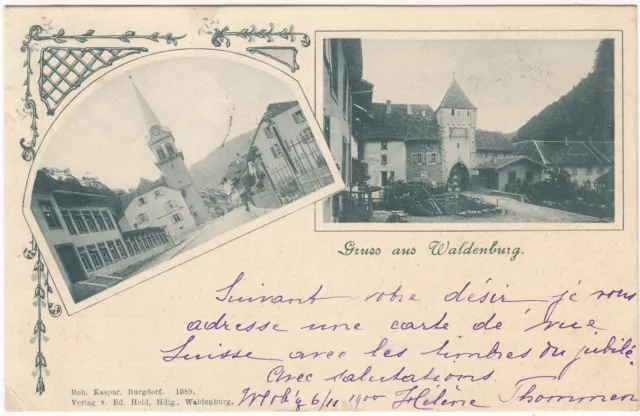 Gruss aus Waldenburg.
Suivant votre désir je vous
adresse une carte de vue
Suisse avec les timbres du jubilé.
Avec salutations.
6/11 1900 Hélène Thommen
Rob. Kaspar, Burgdorf. 1089.
Verlag v. Ed. Heid, Hdlg., Waldenburg.